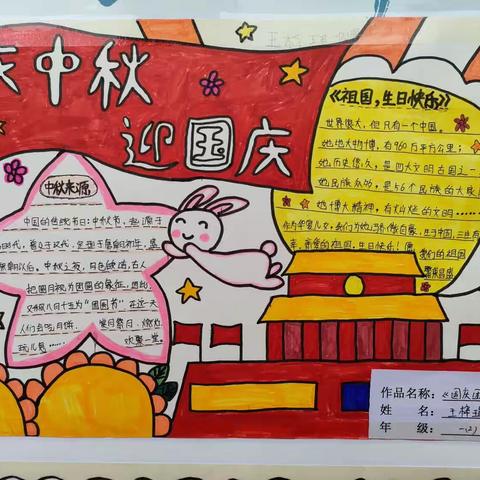 庆中秋
迎国庆
《祖国,生日快乐》
世界很大,但只有一个中国。
她地大物博,有960万平方公里;
她历史悠久,是四大文明古国之一
她民族众多,是56个民族的大家庭
她博大精神,有灿烂的文明……
作为华夏儿女,我们为她骄傲自豪,生于中国,三生有
幸,亲爱的祖国,生日快乐!愿
我们的祖国
繁荣昌盛
中秋来源
中国的传统节日:中秋节,起源于
时代,普及于汉代,定型于唐朝初年,盛
朝以后。中秋之夜,月色皎洁,古人
把圆月视为团圆的象征,因此,
又称八月十五为“团圆节”在这一天
人们会吃月饼、赏月祭月、燃灯、
玩儿
欢聚一堂。
作品名称:《国庆
姓 名:王梓
年 级:一(2)